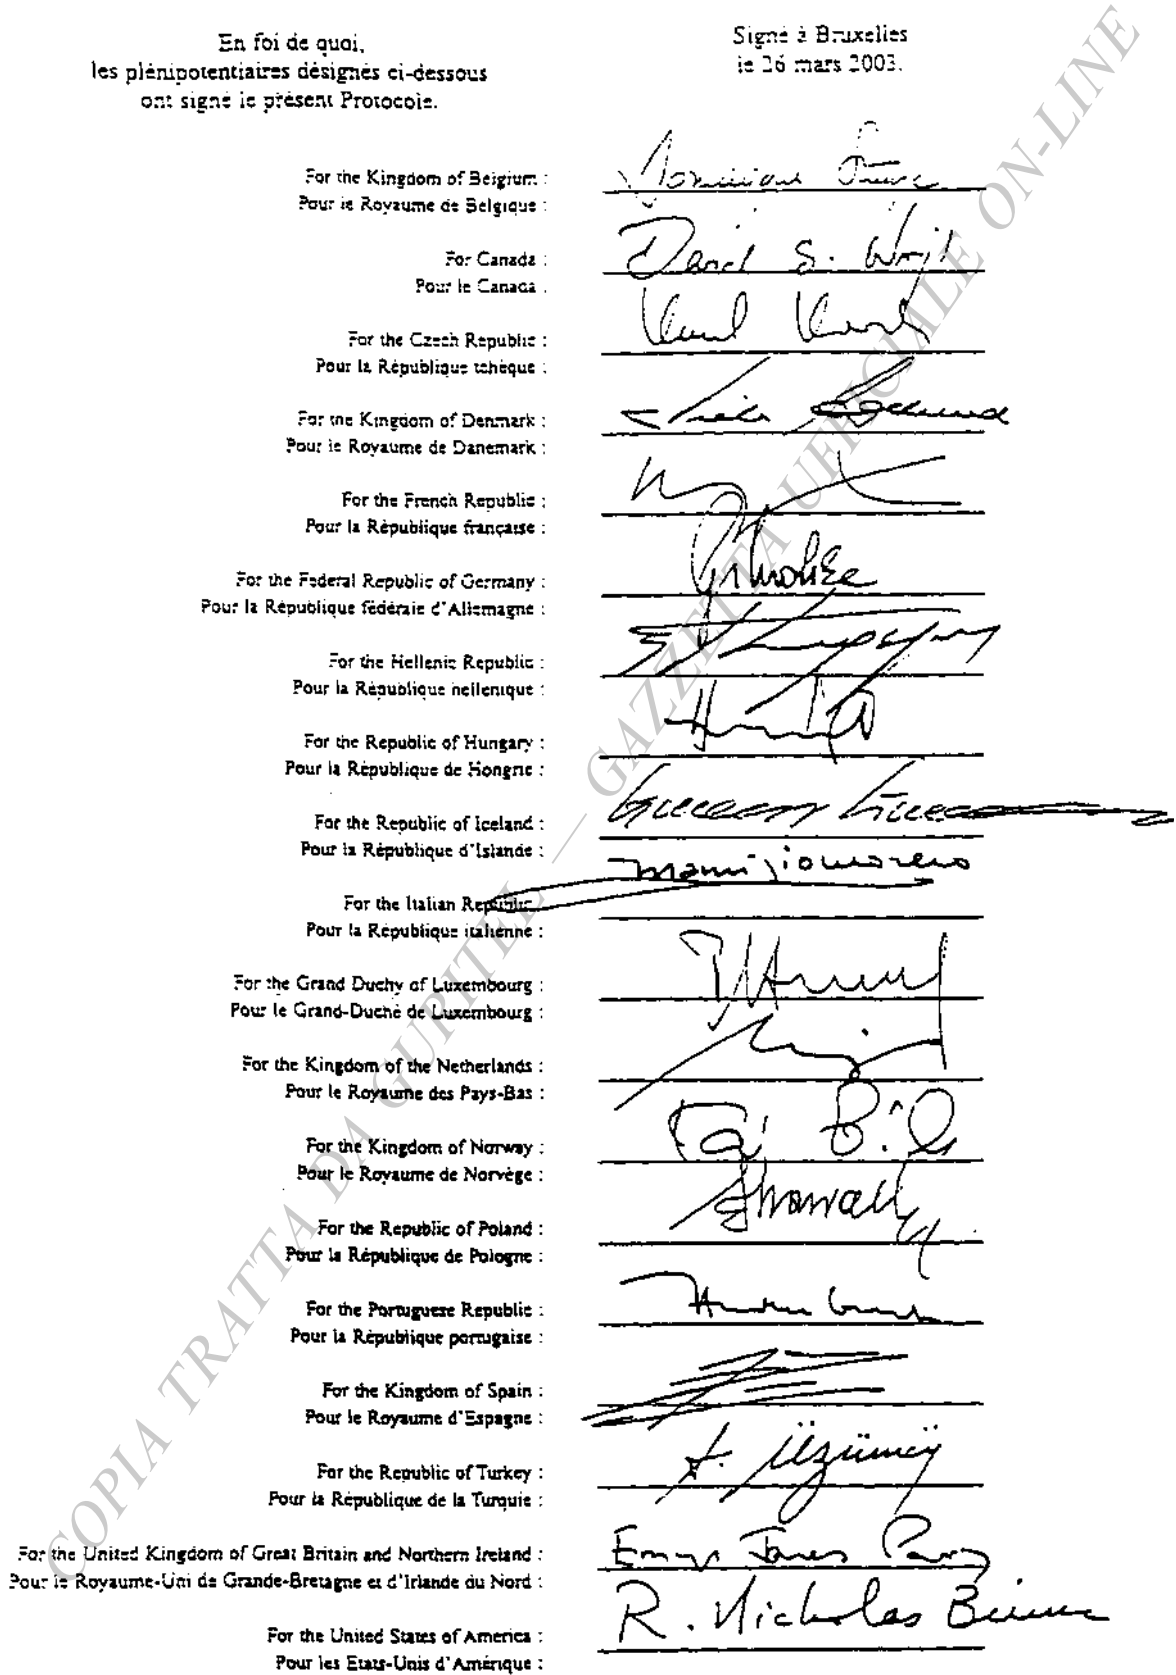 En foi de quoi,
les plénipotentiaires désignés ci-dessous
ont signé le présent Protocole.
Signé à Bruxelles
le 26 mars 2003.
For the Kingdom of Belgium :
Pour le Royaume de Belgique :
For Canada :
David S. Wright
Pour le Canada :
For the Czech Republic :
Pour la République tchèque :
For the Kingdom of Denmark :
Pour le Royaume de Danemark :
For the French Republic :
Pour la République française :
For the Federal Republic of Germany :
Pour la République fédérale d'Allemagne :
For the Hellenic Republic :
Pour la République hellénique :
For the Republic of Hungary :
Pour la République de Hongrie :
For the Republic of Iceland :
Pour la République d'Islande :
For the Italian Republic
Pour la République italienne :
For the Grand Duchy of Luxembourg :
Pour le Grand-Duché de Luxembourg :
For the Kingdom of the Netherlands :
Pour le Royaume des Pays-Bas :
For the Kingdom of Norway :
Pour le Royaume de Norvège :
For the Republic of Poland :
Pour la République de Pologne :
For the Portuguese Republic :
Pour la République portugaise :
For the Kingdom of Spain :
Pour le Royaume d'Espagne :
For the Republic of Turkey :
Pour la République de la Turquie :
For the United Kingdom of Great Britain and Northern Ireland :
Emyr Jones Parry
Pour le Royaume-Uni de Grande-Bretagne et d'Irlande du Nord :
R. Nicholas Burns
For the United States of America :
Pour les Etats-Unis d'Amérique :
COPIA TRATTA DA GURITEL — GAZZETTA UFFICIALE ON-LINE